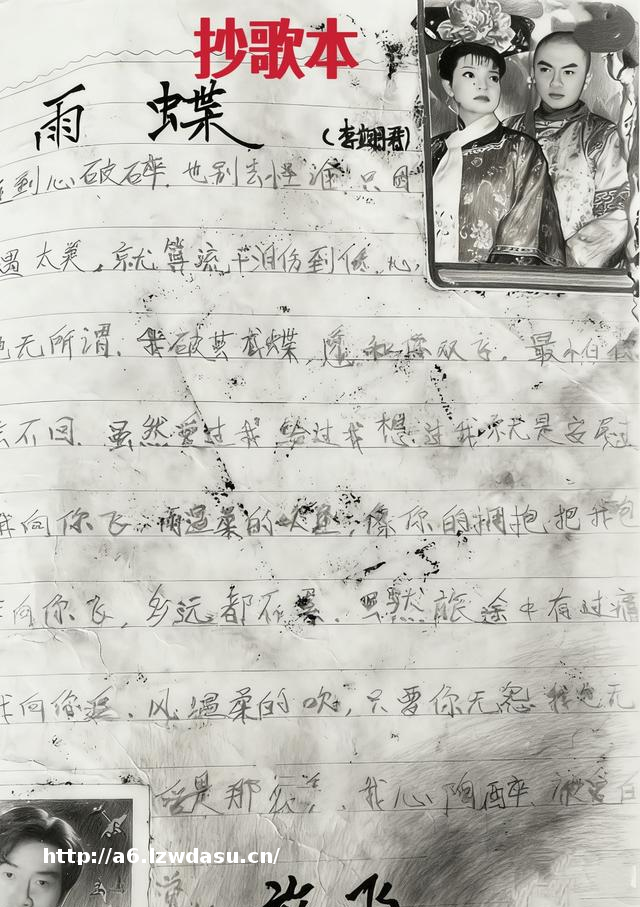 抄歌本
雨 蝶
(李翊君)
到心破碎.也别去怪谁.只因
遇太美,就算流干泪伤到底,心
无所谓.我破茧成蝶,愿和你双飞.最怕
不回.虽然爱过我给过我想过我就是安慰
我向你飞,雨温柔的坠,像你的拥抱把我包
向你飞,多远都不累.虽然旅途中有过痛
我向你追.风温柔的吹,只要你无怨 我也无
是那 我心陶醉.被爱
飞
http://a6.lzwdasu.cn/